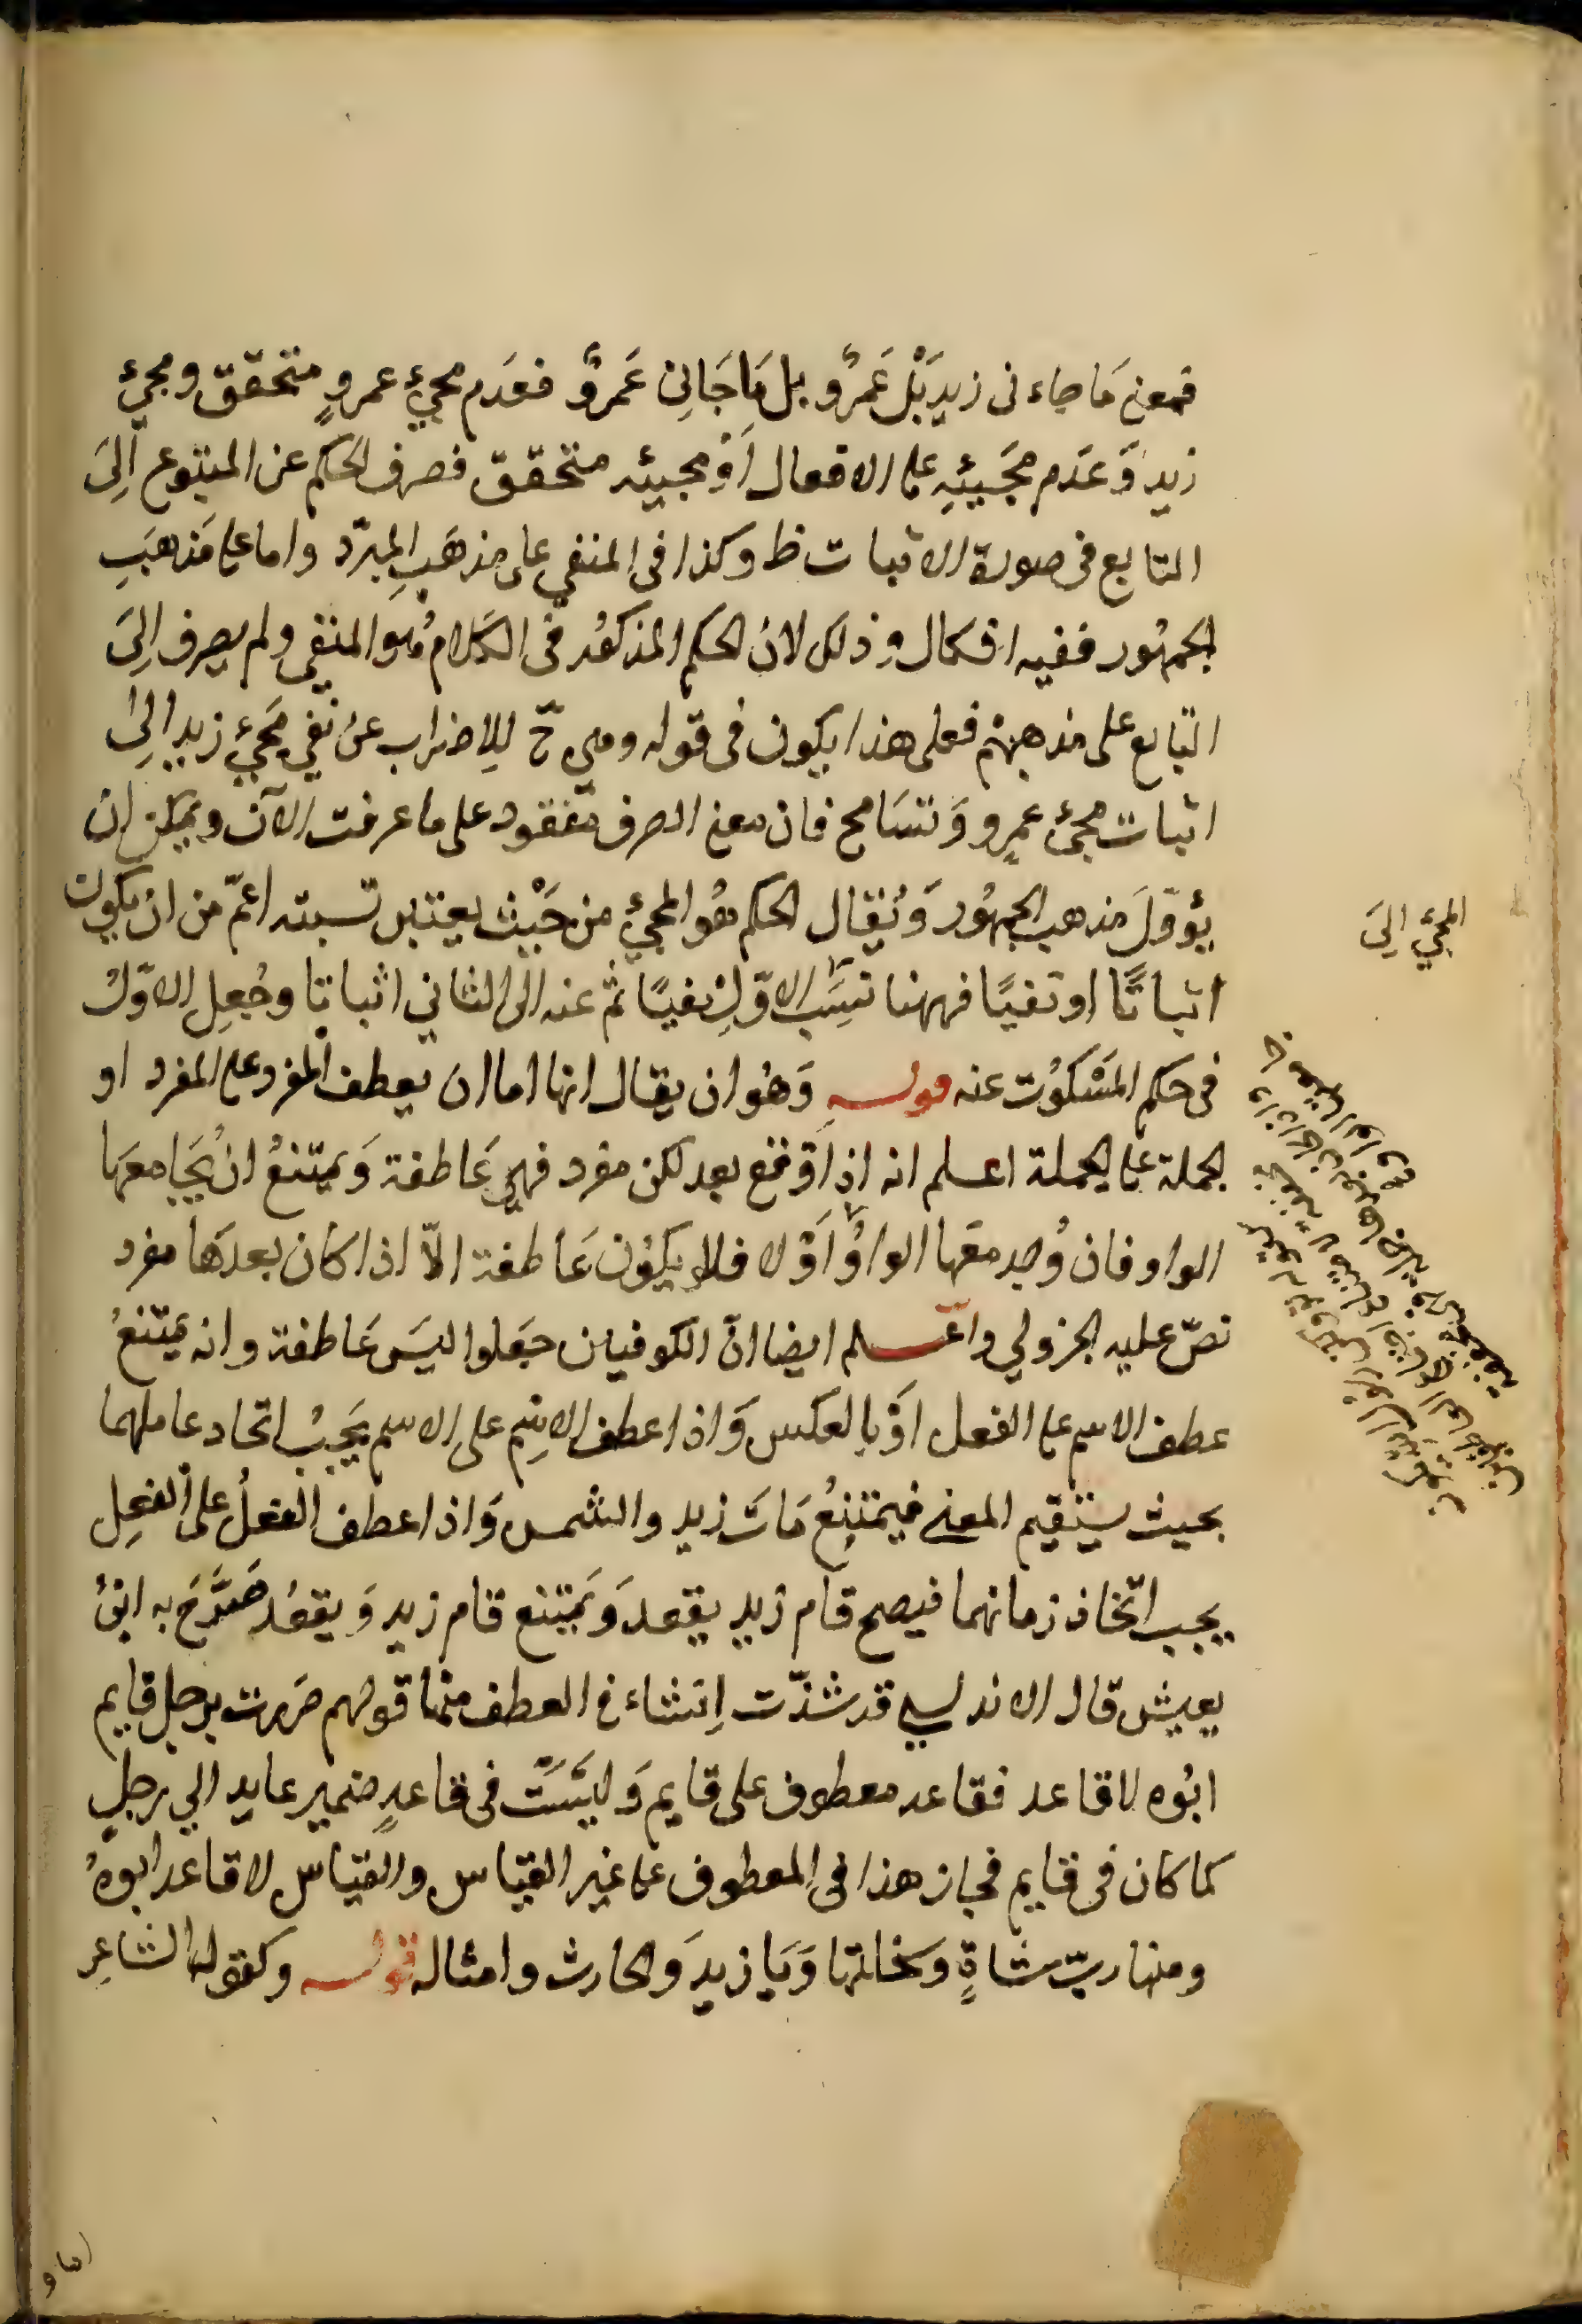 فمعنى مَا جاء نى زيد بَلْ عَمرٌو بل مَا جَانِى عَمروٌ فعَدم مجئ عمروٍ متحقق ومجئ
زيد وَعَدم مَجَيئِهِ على الاحتمال اَوْ مجيئه متحقق فصرف الحكم عن المتبوع اِلىَ
التابع فى صورة الاثبات ظ وكذا فى المنفى على مذهَبِ المبرّد واما على مَذهَبِ
الجمهُور ففيه اشكال وذلك لان الحكم المذكور فى الكلام هُو المنفى ولم يصرف اِلىَ
التابع على مذهبهمْ فعلى هذا يكون فى قوله ومجى حّ لِلاضراب عن نفي مَجئ زيد اِلىٰ
اثبات مجىٔ عمرٍو وَتسَامح فان معنى الصرف مفقود على ما عرفت الآن ويمكن ان
يؤوّلَ مذهب الجمهُور وَيُقال الحكم هُو المجىٔ من حَيْث يعتبر نسبته اعمّ من ان يكون
اثباتًا او نفيًا فههنا نسَب الاوّلِ نفيًا ثم عنه الى الثاني اثباتا وجُعِل الاوّلُ
فى حكم المَسْكُوت عنه قولـــه وَهُو ان يقال انها اما ان يعطف المفرد على المفرد او
الجملة على الجملة اعــلم انه اذا وَقع بعد لكن مفرد فهِى عَاطفة وَيمتنعُ انْ يُجَامعَها
الواو فان وُجد معَها الواوُ اَوْ لا فلا يكوُن عَاطفة الاّ اذا كان بعدَها مفرد
نصّ عليه الجزولي واعــلم ايضا انّ الكوفيين جعَلوا ليسَ عَاطفة وانه يمتنعُ
عطف الاسم على الفعل اوْ بالعكس وَاذا عطف الاسِم على الاسم يَجبُ اتحاد عاملهما
بحيث يستقيم المعنى فيمتنِعُ مَات زيد والشمس وَاذا عطف الفعلُ على الفعِل
يجب اتّحاد زمانهما فيصح قام زيد يقعد وَيمتنع قام زيد وَيقعُد صَرَّحَ به ابنُ
يعيش قال الاندلسي قد شذّت اِشياء فى العطف منها قولهم مَررت برجل قايم
ابُوه لا قاعد فقاعد معطوف على قايم وَليسَتْ فى قاعدٍ ضمير عايد الي رجل
كما كان فى قايم فجاز هذا فى المعطوف على غير القيَاس والقيَاس لا قاعد ابوهُ
ومنها ربّ شاةٍ وَسخلتها وَيَا زيدَ وَالحارث وامثاله قولـــه وكقول الشاعِر
المجئ اِلىَ